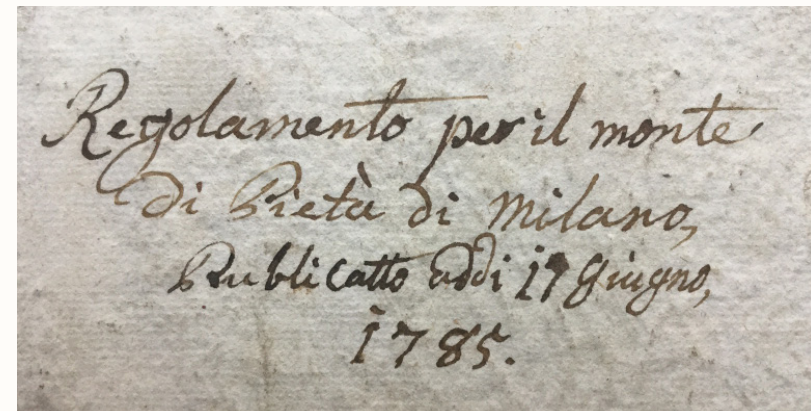 Regolamento per il monte
di Pietà di Milano,
Publicatto addi 17 Giugno,
1785.